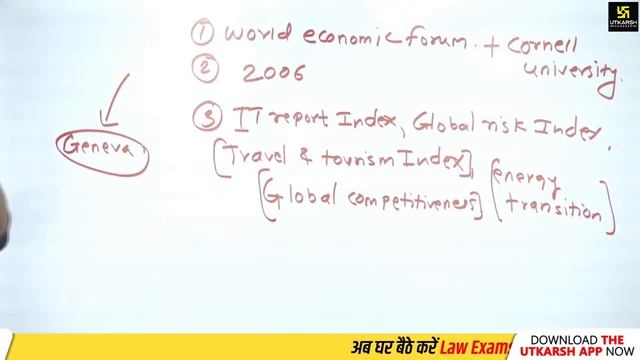 UTKARSH
① World economic forum. + Cornell
university.
② 2006
③ IT report Index, Global risk Index,
Geneva
[Travel & tourism Index],
[Global competitiveness]
[energy
transition]
अब घर बैठे करें Law Exams
DOWNLOAD THE
UTKARSH APP NOW